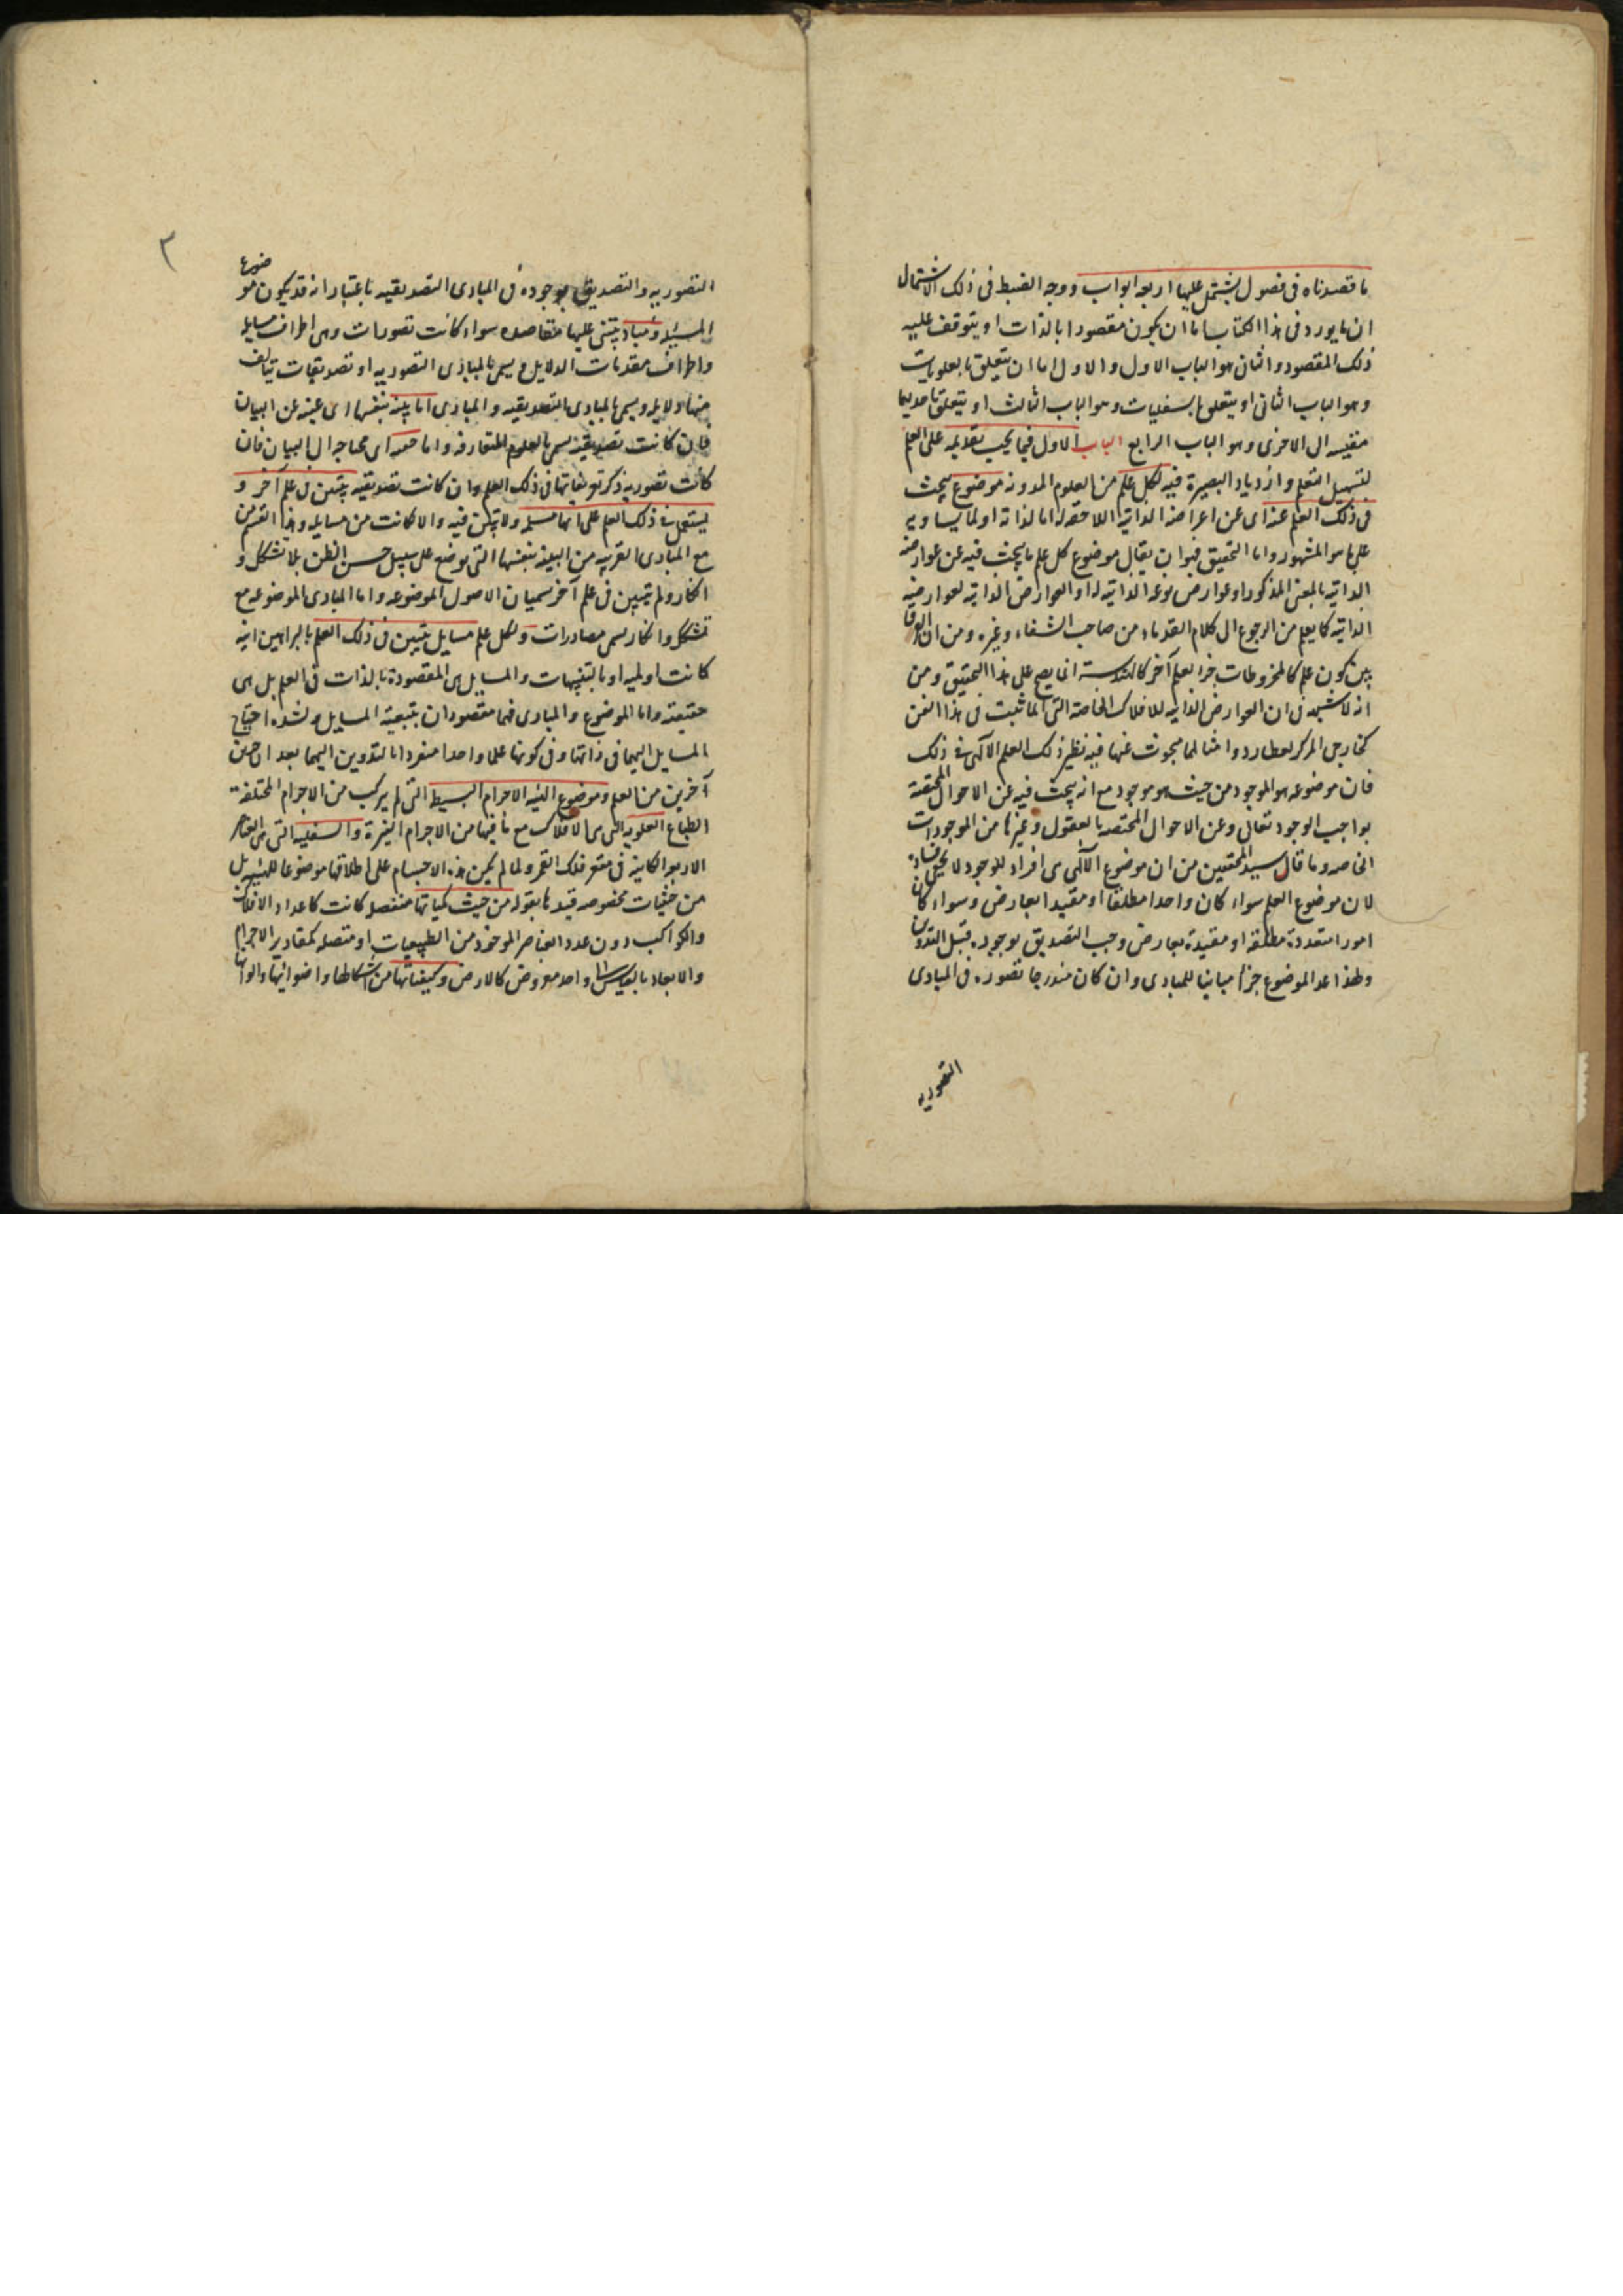 ما قصدناه فى فصول يشتمل عليها اربعه ابواب ووجه الضبط فى ذلك الاشتمال
ان ما يورد فى هذا الكتاب اما ان يكون مقصودا بالذات او يتوقف عليه
ذلك المقصود والثانى هو الباب الاول والاول اما ان يتعلق بالعلويات
وهو الباب الثانى او يتعلق بالسفليات وهو الباب الثالث او يتعلق باحديهما
مقيسه الى الاخرى وهو الباب الرابع الباب الاول فيما يجب تقديمه على العلم
لتسهيل التعلم وازدياد البصيرة فيه لكل علم من العلوم المدونه موضوع يبحث
فى ذلك العلم عنه اى عن اعراضه الذاتيه اللاحقه له اما لذاته او لما يساويه
على ما هو المشهور واما التحقيق فهو ان يقال موضوع كل علم ما يبحث فيه عن عوارضه
الذاتيه بالمعنى المذكور او عوارض نوعه الذاتيه له او العوارض الذاتيه لعوارضه
الذاتيه كما يعلم من الرجوع الى كلام القدماء من صاحب الشفاء وغيره ومن ان
بين كون علم كالمخروطات جزا لعلم آخر كالهندسة انما يصح على هذا التحقيق ومن
انه لا شبهه فى ان العوارض الذاتيه للافلاك الخاصة التى انما تثبت فى هذا الفن
كخارجى المركز لعطارد وامثالها مبحوث عنها فيه نظير ذلك العلم الآلهى فى ذلك
فان موضوعه هو الموجود من حيث هو موجود مع انه يبحث فيه عن الاحوال المختصة
بواجب الوجود تعالى وعن الاحوال المختصه بالعقول وغيرها من الموجودات
الخاصه وما قال سيد المحققين من ان موضوع الآلهى هى افراد للوجود لا يخفى فساده
لان موضوع العلم سواء كان واحدا مطلقا او مقيدا بعارض وسواء كان
امورا متعددة مطلقه او مقيدة بعارض وجب التصديق بوجوده قبل التدوين
ولهذا عد الموضوع جزءا مباينا للمبادى وان كان مندرجا تصوره فى المبادى
التصوريه
٢
التصوريه والتصديق بوجوده فى المبادى التصديقيه باعتبار انه قد يكون موضوع
المسئله ومباد يبتنى عليها مقاصده سواء كانت تصورات وهى اطراف مسايله
واطراف مقدمات الدلايل ويسمى بالمبادى التصوريه او تصديقات يتألف
منها دلايله ويسمى بالمبادى التصديقيه والمبادى اما بينه بنفسها اى غنيه عن البيان
فان كانت تصديقيه يسمى بالعلوم المتعارفه واما اى محتاجه الى البيان فان
كانت تصوريه ذكر تعريفاتها فى ذلك العلم وان كانت تصديقيه يتبين فى علم آخر و
يستعمل فى ذلك العلم على انها مسلمه ولا يتبين فيه والا كانت من مسايله وهذا القسم من
مع المبادى القريبه من البينه بنفسها التى توضع على سبيل حسن الظن بلا تشكك و
انكار ولم تتبين فى علم آخر تسميان الاصول الموضوعه واما المبادى الموضوعه مع
تشكك وانكار تسمى مصادرات ولكل علم مسايل يتبين فى ذلك العلم بالبراهين انيه
كانت او لميه او بالتنبيهات والمسايل هى المقصودة بالذات فى العلم بل هى
حقيقته واما الموضوع والمبادى فهما مقصودان بتبعية المسايل ولشده احتياج
المسايل اليهما فى ذاتها وفى كونها علما واحدا منفردا بالتدوين اليهما يعدان جزئين
آخرين من العلم وموضوع الهيئه الاجرام البسيط التى لم يركب من الاجرام المختلفة
الطباع العلويه التى هى الافلاك مع ما فيها من الاجرام النيرة والسفليه التى هى العناصر
الاربع الكاينه فى مقعر فلك القمر ولما لم يكن هذه الاجسام على اطلاقها موضوعا للهيئه بل
من حيثيات مخصوصه قيدها بقوله من حيث كمياتها منفصله كانت كاعداد الافلاك
والكواكب دون عدد العناصر الموخوذ من الطبيعيات او متصله كمقادير الاجرام
والابعاد بالقياس الى واحد معروض كالارض وكيفياتها من اشكالها واضوائها والوانها